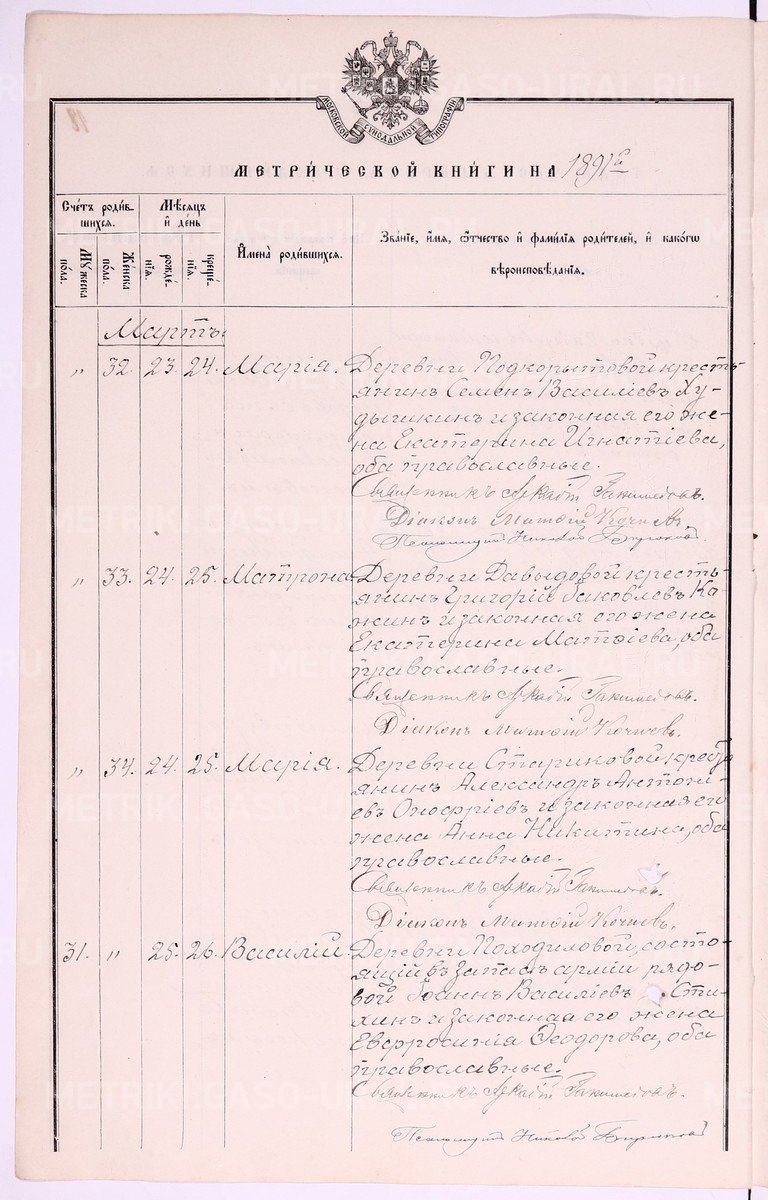 МОСКОВСКОЙ СѴНОДАЛЬНОЙ ТИПОГРАФІИ
МЕТРИ́ЧЕСКОЙ КНИ́ГИ НА 1891 г.
Сче́тъ роди́в-
шихся.
Мѣсяцъ
и҆ де́нь
И҆мена̀ роди́вшихся.
Зва́нїе, и҆́мя, ѻ҆́тчество и҆ фами́лїя роди́телей, и҆ како́гѡ
вѣроисповѣ́данїя.
Мꙋжеска
по́ла.
Же́нска
по́ла.
рожде́-
нїя.
креще́-
нїя.
Мартъ.
„ 32. 23. 24. Марія. Деревни Подкорытовой кресть-
янинъ Семенъ Василіевъ Ху-
дышкинъ и законная его же-
на Екатерина Игнатіева,
оба православные.
Священникъ Аркадій
Діаконъ Матѳій Кочневъ.
Псаломщикъ Николай Бирюковъ
„ 33. 24. 25. Матрона Деревни Давыдовой кресть-
янинъ Григорій Іаковлевъ Ко-
жинъ и законная его жена
Екатерина Матѳіева, оба
православные.
Священникъ Аркадій
Діаконъ Матѳій Кочневъ.
„ 34. 24. 25. Марія. Деревни Стариковой кресть-
янинъ Александръ Антоні-
евъ Оноѳріевъ и законная его
жена Анна Никитина, оба
православные.
Священникъ Аркадій
Діаконъ Матѳій Кочневъ.
31. „ 25. 26. Василій. Деревни Походиловой, состо-
ящій въ запасѣ арміи рядо-
вой Іоаннъ Василіевъ Сти-
хинъ и законная его жена
Евфросинія Ѳеодорова, оба
православные.
Священникъ Аркадій
Псаломщикъ Николай Бирюковъ